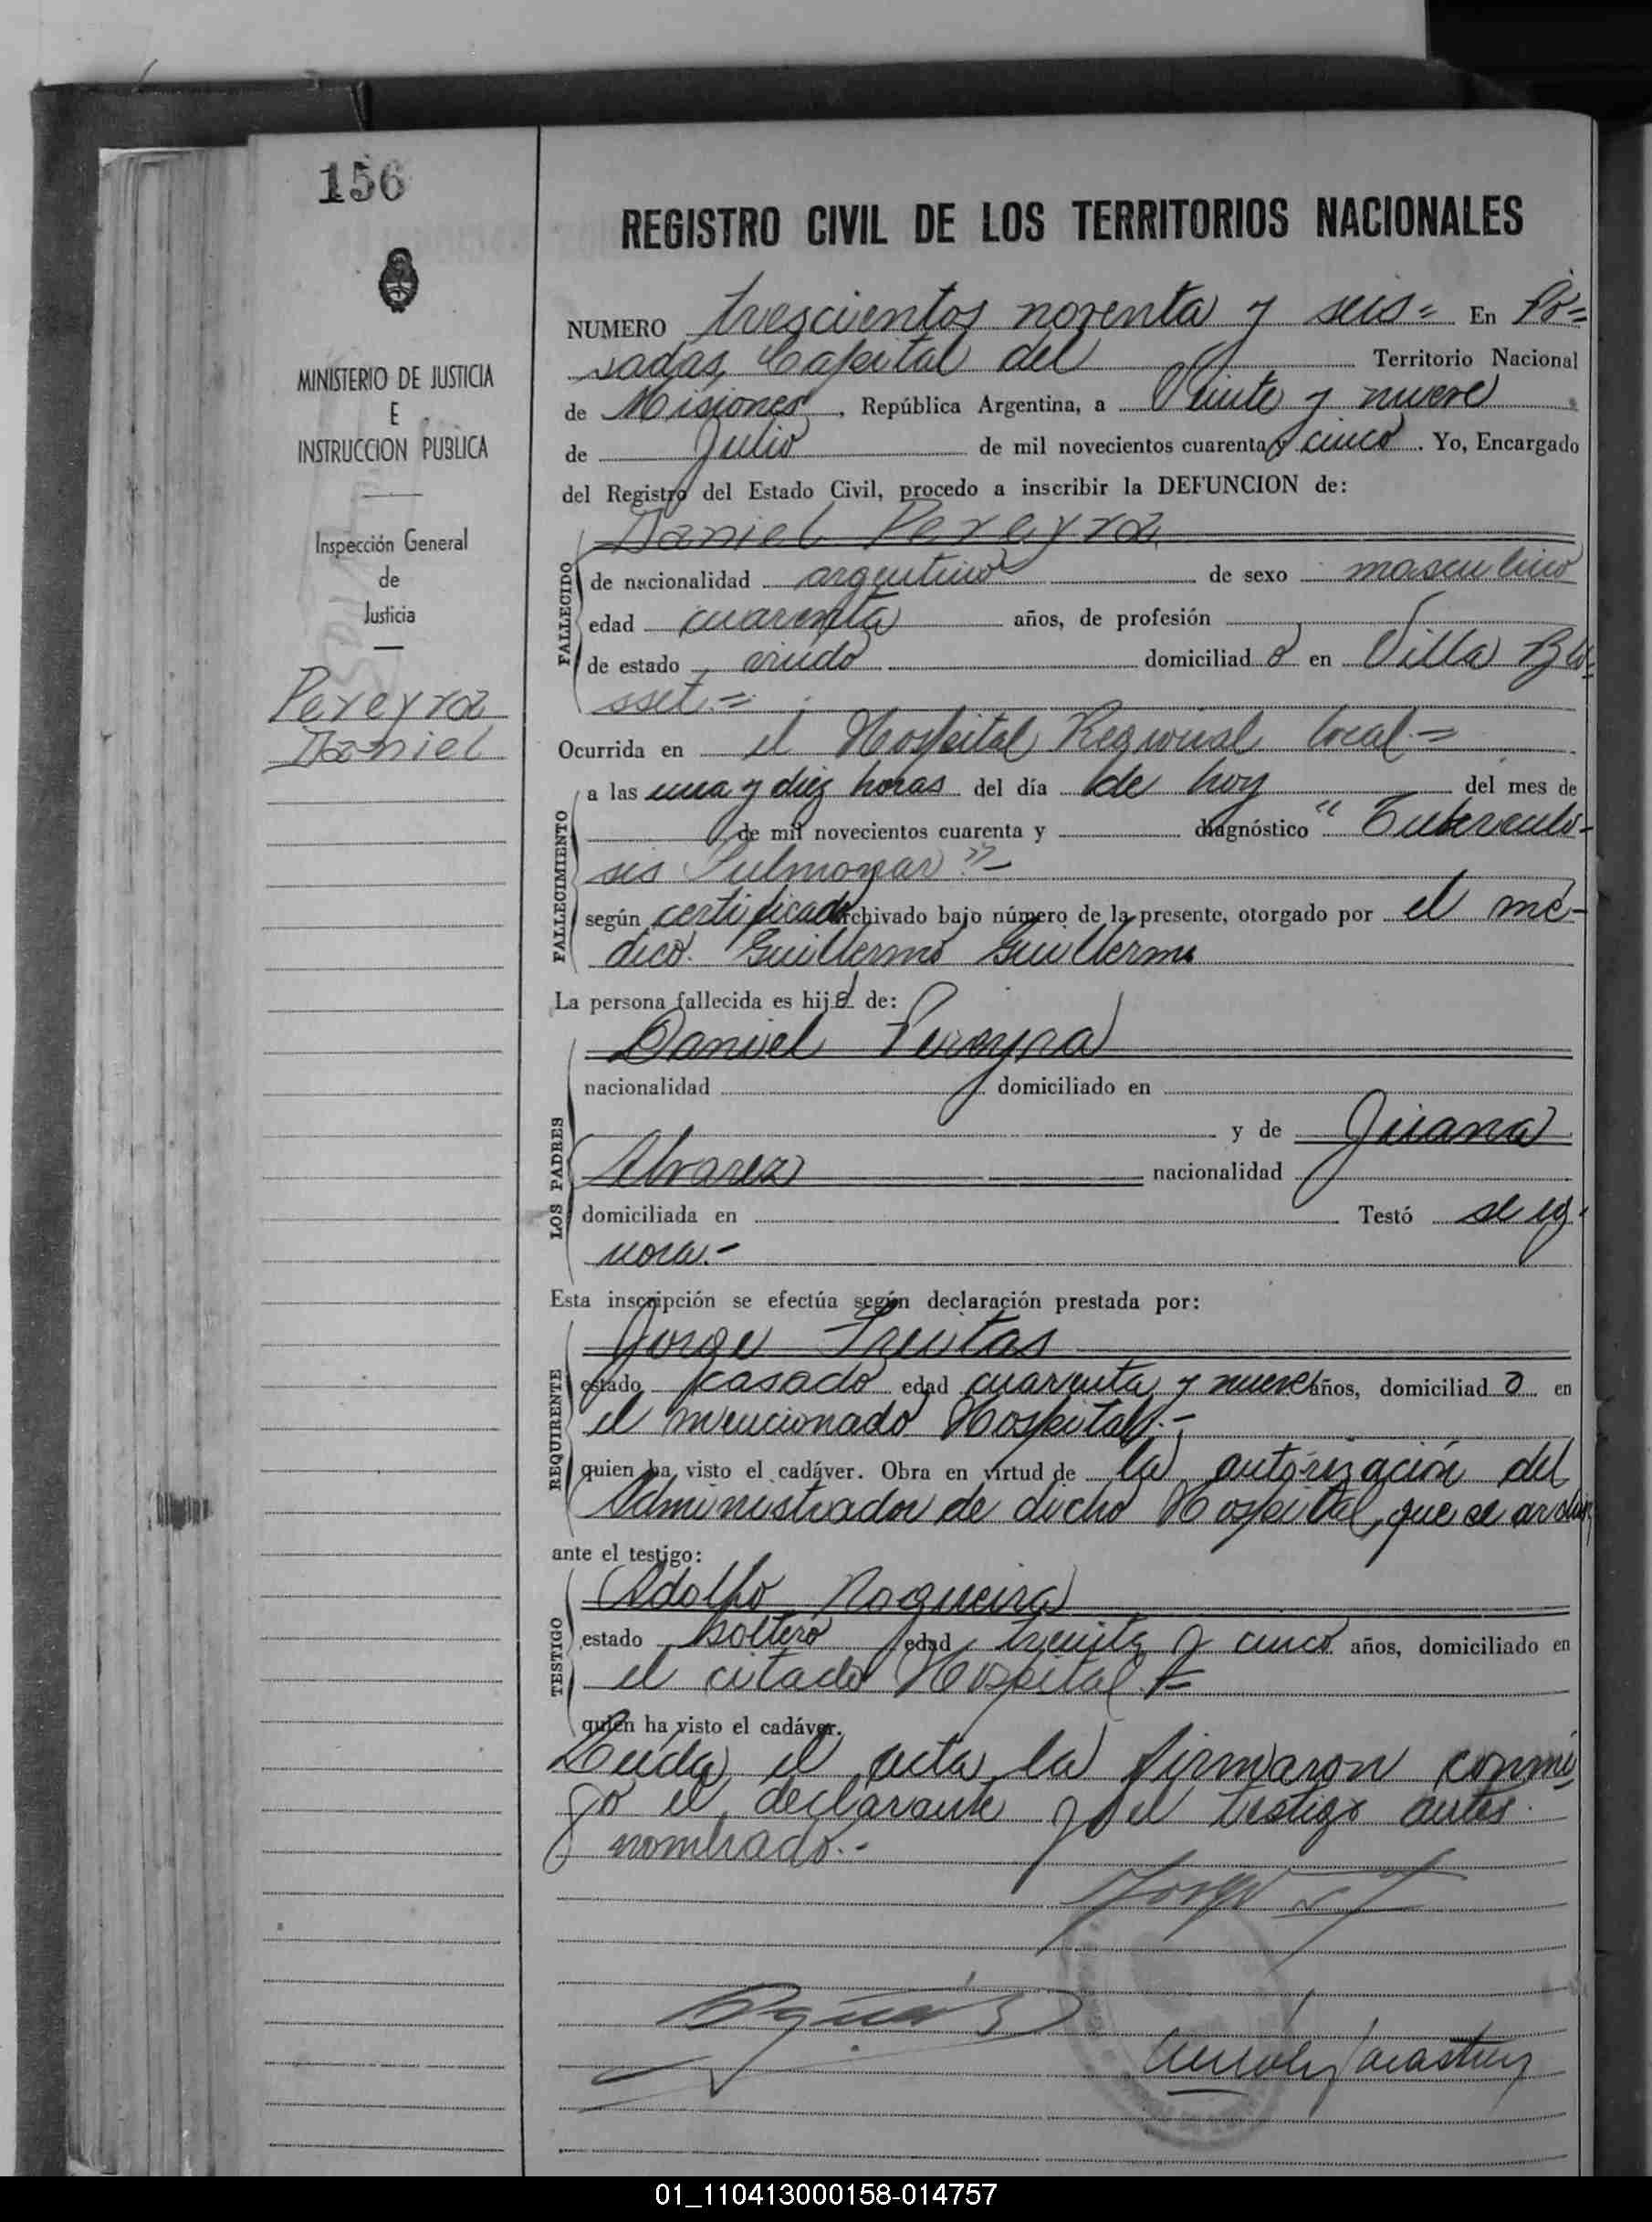 156
MINISTERIO DE JUSTICIA
E
INSTRUCCION PUBLICA
Inspección General
de
Justicia
Pereyra
Daniel
REGISTRO CIVIL DE LOS TERRITORIOS NACIONALES
NUMERO trescientos noventa y seis = En Po=
sadas, Capital del Territorio Nacional
de Misiones, República Argentina, a Veinte y nueve
de Julio de mil novecientos cuarenta y cinco. Yo, Encargado
del Registro del Estado Civil, procedo a inscribir la DEFUNCION de:
Daniel Pereyra
FALLECIDO
de nacionalidad argentino de sexo masculino
edad cuarenta años, de profesión
de estado viudo domiciliado en Villa Blo=
sset.=
Ocurrida en el Hospital Regional local.=
FALLECIMIENTO
a las una y diez horas del día de hoy del mes de
de mil novecientos cuarenta y diagnóstico "Tuberculo-
sis Pulmonar".-
según certificado archivado bajo número de la presente, otorgado por el mé-
dico. Guillermo Guillermi
La persona fallecida es hijo de:
LOS PADRES
Daniel Pereyra
nacionalidad domiciliado en
y de Juana
Alvarez nacionalidad
domiciliada en Testó se ig-
nora.-
Esta inscripción se efectúa según declaración prestada por:
REQUIRENTE
Jorge Freitas
estado casado edad cuarenta y nueve años, domiciliado en
el mencionado Hospital.-
quien ha visto el cadáver. Obra en virtud de la autorización del
Administrador de dicho Hospital, que se archiva
ante el testigo:
TESTIGO
Adolfo Nogueira
estado soltero edad treinta y cinco años, domiciliado en
el citado Hospital.=
quien ha visto el cadáver.
Leída el acta, la firmaron conmi
go el declarante y el testigo antes
nombrado.-
01_110413000158-014757